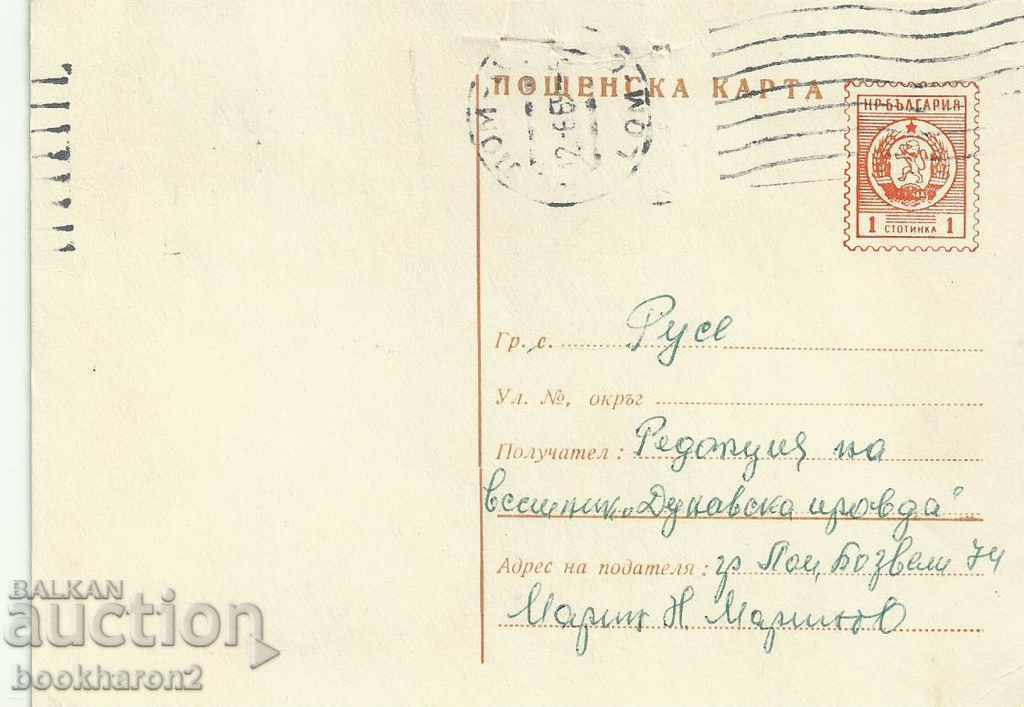 ПОЩЕНСКА КАРТА
ЛОМ
ЛОМ
НР·БЪЛГАРИЯ
1 СТОТИНКА 1
Гр. с. Русе
Ул. №, окръг
Получател: Редакция на
вестник „Дунавска правда"
Адрес на подателя: гр Лом, Бозвели 74
Марин Н. Маринов
BALKAN
auction
bookharon2